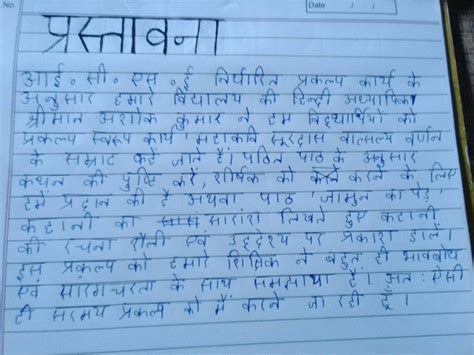 No.
Date / /
प्रस्तावना
आई॰ सी॰ एस॰ ई निर्धारित प्रकल्प कार्य के
अनुसार हमारे विद्यालय की हिन्दी अध्यापिका
श्रीमान अशोक कुमार ने हम विद्यार्थियो को
प्रकल्प स्वरूप कार्य महाकवि सूरदास वात्सल्य वर्णन
के सम्राट कहें जाते हैं। पठित पाठ के अनुसार
कथन की पुष्टि करें, शीर्षक को करने के लिए
हमें प्रदान की है अथवा पाठ 'जामुन का पेड़'
कहानी का सारांश लिखते हुए कहानी
की रचना शैली एवं उद्देश्य पर प्रकाश डालें।
इस प्रकल्प को हमारे शिक्षिक ने बहुत ही भावबोध
एवं के साथ समझाया है। अतः ऐसी
ही प्रकल्प को मैं करने जा रही हूँ।